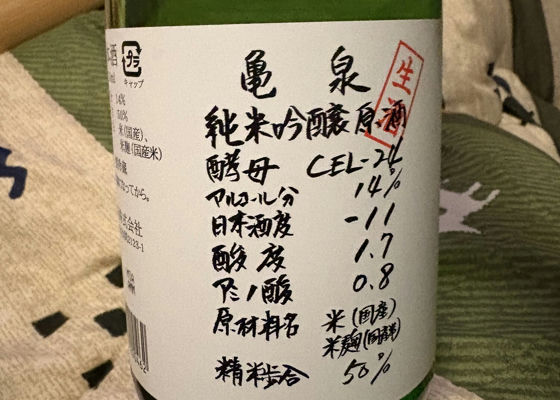 亀泉
生酒
純米吟醸原酒
酵母 CEL-24
アルコール分 14%
日本酒度 -11
酸度 1.7
アミノ酸 0.8
原材料名 米(国産)
米麹(国産米)
精米歩合 50%
プラ
キャップ
14%
50%
米(国産)、
米麹(国産米)
なってから。
式会社
2123-1